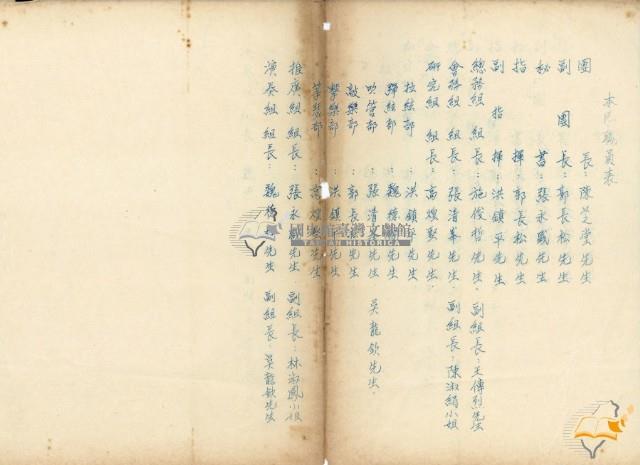 本民職員表
團 長：陳芝堂先生
副 團 長：郭長松先生
秘 書：張永盛先生
指 揮：郭長松先生
副 指 揮：洪鎮平先生
總務組 組長：施俊哲先生．副組長：王傳烈先生
會務組 組長：張清峯先生．副組長：陳淑絹小姐
研究組 組長：高煌聚先生．
拉絃部：洪鎮平先生
彈絃部：魏 先生
吹管部：張清峯先生 吳龍欽先生．
敲樂部：郭長松先生
擊樂部：洪鎮 先生
部：高煌聚先生
推廣組 組長：張永盛先生．副組長：林淑鳳小姐
演奏組 組長：魏 先生 副組長：吳龍欽先生
國史館臺灣文獻館
TAIWAN HISTORICA